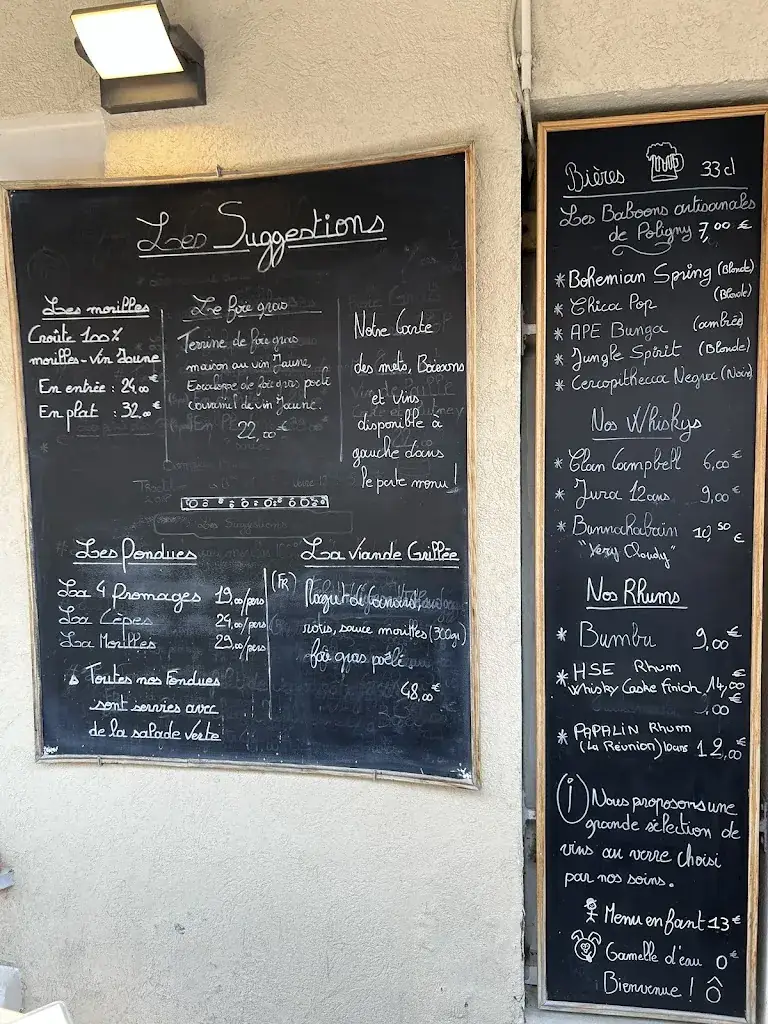 Les Suggestions
Les morilles
Croûte 100%
morilles-vin Jaune
En entrée : 24,00€
En plat : 32,00€
Le foie gras
Terrine de foie gras
maison au vin Jaune,
Escalope de foie gras poêlé
caramel de vin Jaune.
22,00€
Notre Carte
des mets, Boissons
et vins
disponible à
gauche dans
le porte menu !
Les Fondues
La 4 Fromages 19,00/pers
La Cèpes 24,00/pers
La Morilles 29,00/pers
Toutes nos Fondues
sont servies avec
de la salade verte
La Viande Grillée
(FR)
rotis, sauce morilles (300g)
foie gras poêlé
48,00€
Bières 33cl
Les Baboons artisanales
de Poligny 7,00 €
* Bohemian Spring (Blonde)
* Chica Pop (Blonde)
* APE Bunga (ambrée)
* Jungle Spirit (Blonde)
* Cercopithecca Negra (Noire)
Nos Whiskys
* Clan Campbell 6,00€
* Jura 12ans 9,00€
* Bunnahabain 10,50 €
"Very Cloudy"
Nos Rhums
* Bumbu 9,00€
* HSE Rhum
Whisky Caske Finish 14,00€
,00 €
* PAPALIN Rhum
(La Réunion) 10ans 12,00€
(i) Nous proposons une
grande sélection de
vins au verre choisi
par nos soins.
Menu enfant 13€
Gamelle d'eau 0€
Bienvenue ! Ô